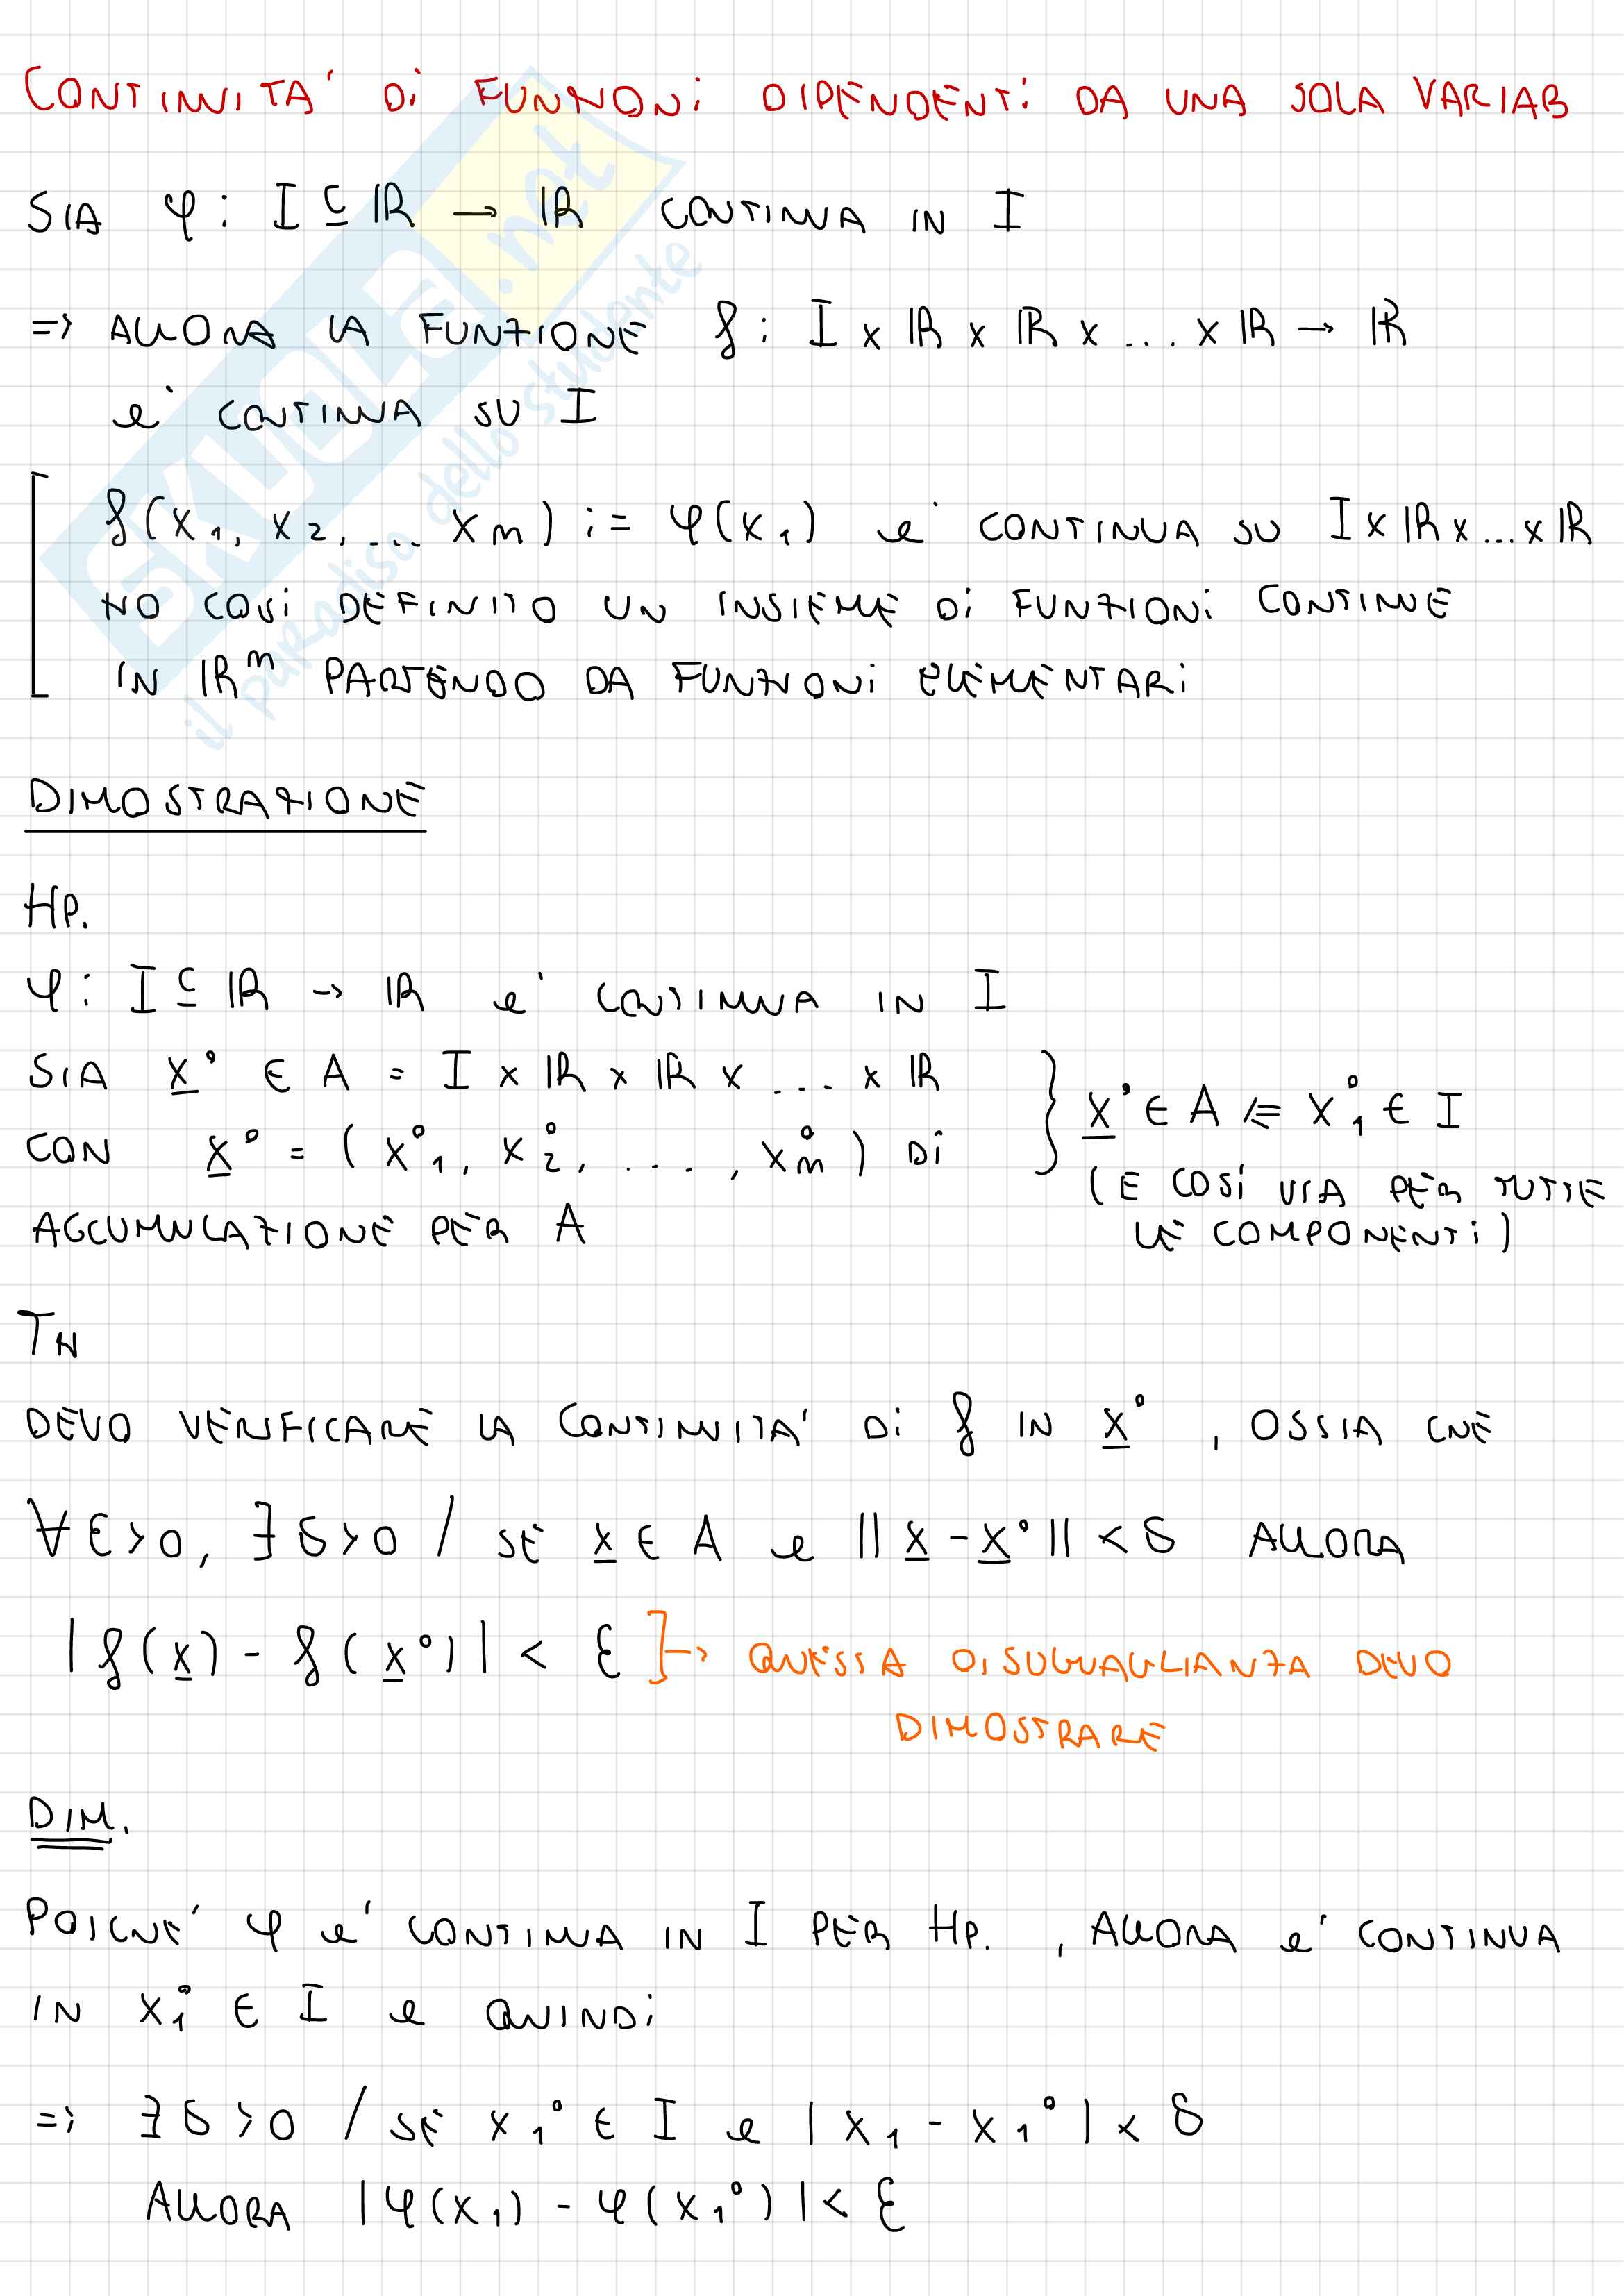 CONTINUITA' DI FUNZIONI DIPENDENTI DA UNA SOLA VARIAB
SIA φ : I ⊆ ℝ → ℝ CONTINUA IN I
=> ALLORA LA FUNZIONE f : I x ℝ x ℝ x ... x ℝ → ℝ
e' CONTINUA SU I
f(x₁, x₂, ... xₘ) := φ(x₁) e' CONTINUA SU I x ℝ x ... x ℝ
HO COSì DEFINITO UN INSIEME DI FUNZIONI CONTINUE
IN ℝᵐ PARTENDO DA FUNZIONI ELEMENTARI
DIMOSTRAZIONE
HP.
φ : I ⊆ ℝ → ℝ e' CONTINUA IN I
SIA x° ∈ A = I x ℝ x ℝ x ... x ℝ
CON x° = (x₁°, x₂°, ..., xₘ°) DI
ACCUMULAZIONE PER A
} x° ∈ A <=> x₁° ∈ I
(E COSì VIA PER TUTTE
LE COMPONENTI)
TH
DEVO VERIFICARE LA CONTINUITA' DI f IN x°, OSSIA CHE
∀ε>0, ∃δ>0 / SE x ∈ A e ||x - x°|| < δ ALLORA
|f(x) - f(x°)| < ε ]→ QUESTA DISUGUAGLIANZA DEVO
DIMOSTRARE
DIM.
POICHE' φ e' CONTINUA IN I PER HP., ALLORA e' CONTINUA
IN x₁° ∈ I e QUINDI
=> ∃δ>0 / SE x₁° ∈ I e |x₁ - x₁°| < δ
ALLORA |φ(x₁) - φ(x₁°)| < ε
SKUOLA.net
il paradiso dello studente